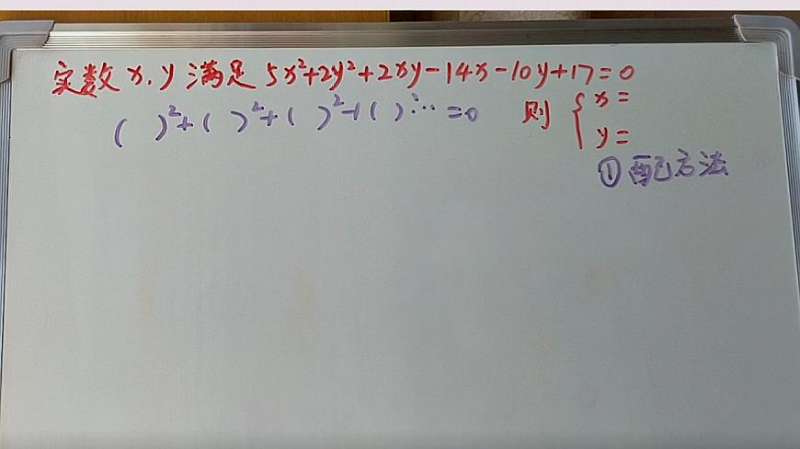 实数 x,y 满足 5x²+2y²+2xy-14x-10y+17=0
( )²+( )²+( )²+( )²... =0 则 { x=
y=
① 配方法